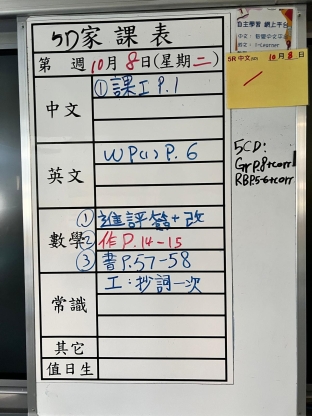 5D家課表
第 週 10月8日(星期二)
中文
①課工 P.1
英文
WP(1) P.6
數學
①進評簽+改
②作P.14-15
③書P.57-58
常識
工:抄詞一次
其它
值日生
自主學習 網上平台
5R 中文 10月8日
5CD:
Gr P.8+corr
RB P.5-6+corr